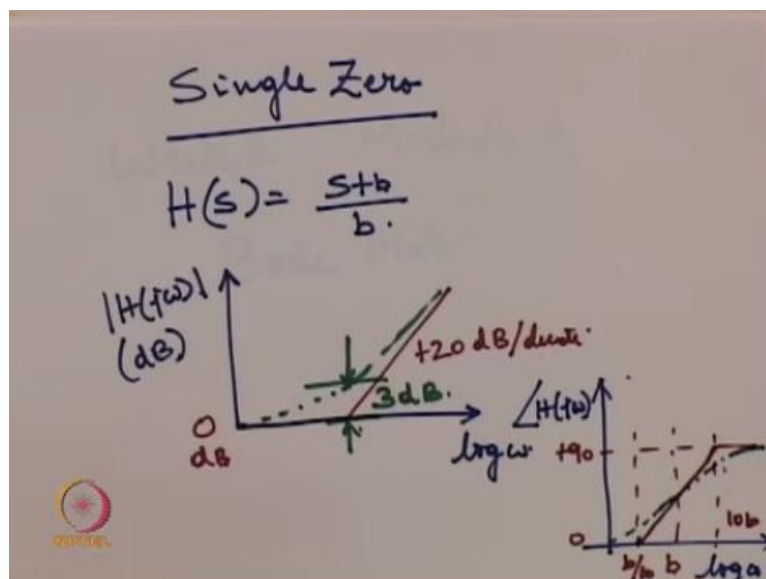 Single Zero
H(s) = s+b
b.
|H(jω)|
(dB)
+20 dB/decade.
3 dB.
0
dB
log ω
∠H(jω)
+90
0
b/10 b 10b
log ω
NPTEL